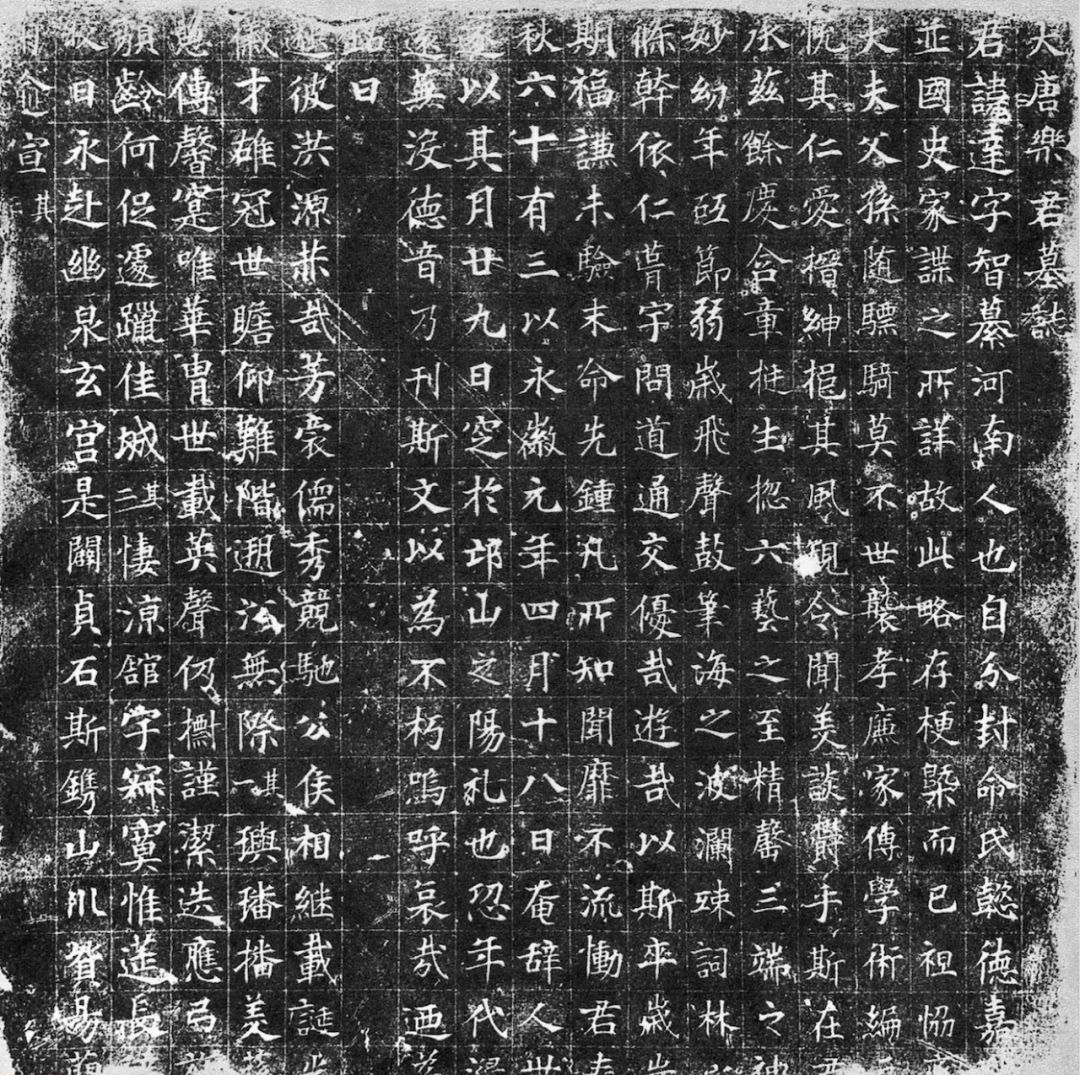 大唐樂君墓誌
君諱達字智纂河南人也自分封命氏懿德嘉
並國史家諜之所詳故此略存梗槩而已祖協
大夫父孫随驃騎莫不世襲孝廉家傳學術編
悦其仁愛搢紳挹其風規令聞美談欝乎斯在
承茲餘慶含章挺生揔六藝之至精罄三端之神
妙幼年砥節弱歲飛聲鼓筆海之波瀾竦詞林
條幹依仁葺宇問道通交優哉遊哉以斯卒歲
期福謙未驗末命先鍾凡所知聞靡不流慟君春
秋六十有三以永徽元年四月十八日奄辞人世
遂以其月廿九日窆於邙山之陽礼也恐年代
遠蕪没德音乃刊斯文以為不朽嗚呼哀哉迺
銘曰
彼洪源恭哉芳裔儒秀競馳公侯相継載誕
俶才雄冠世瞻仰難階遡沿無際其一璵璠播美
傳馨寔唯華胄世載英聲仍擕謹潔迭應弓
頽齡何促遽躐佳城其二悽涼舘宇寂寞惟莚長
日永赴幽泉玄宫是闢貞石斯鐫山川貿易
宣其